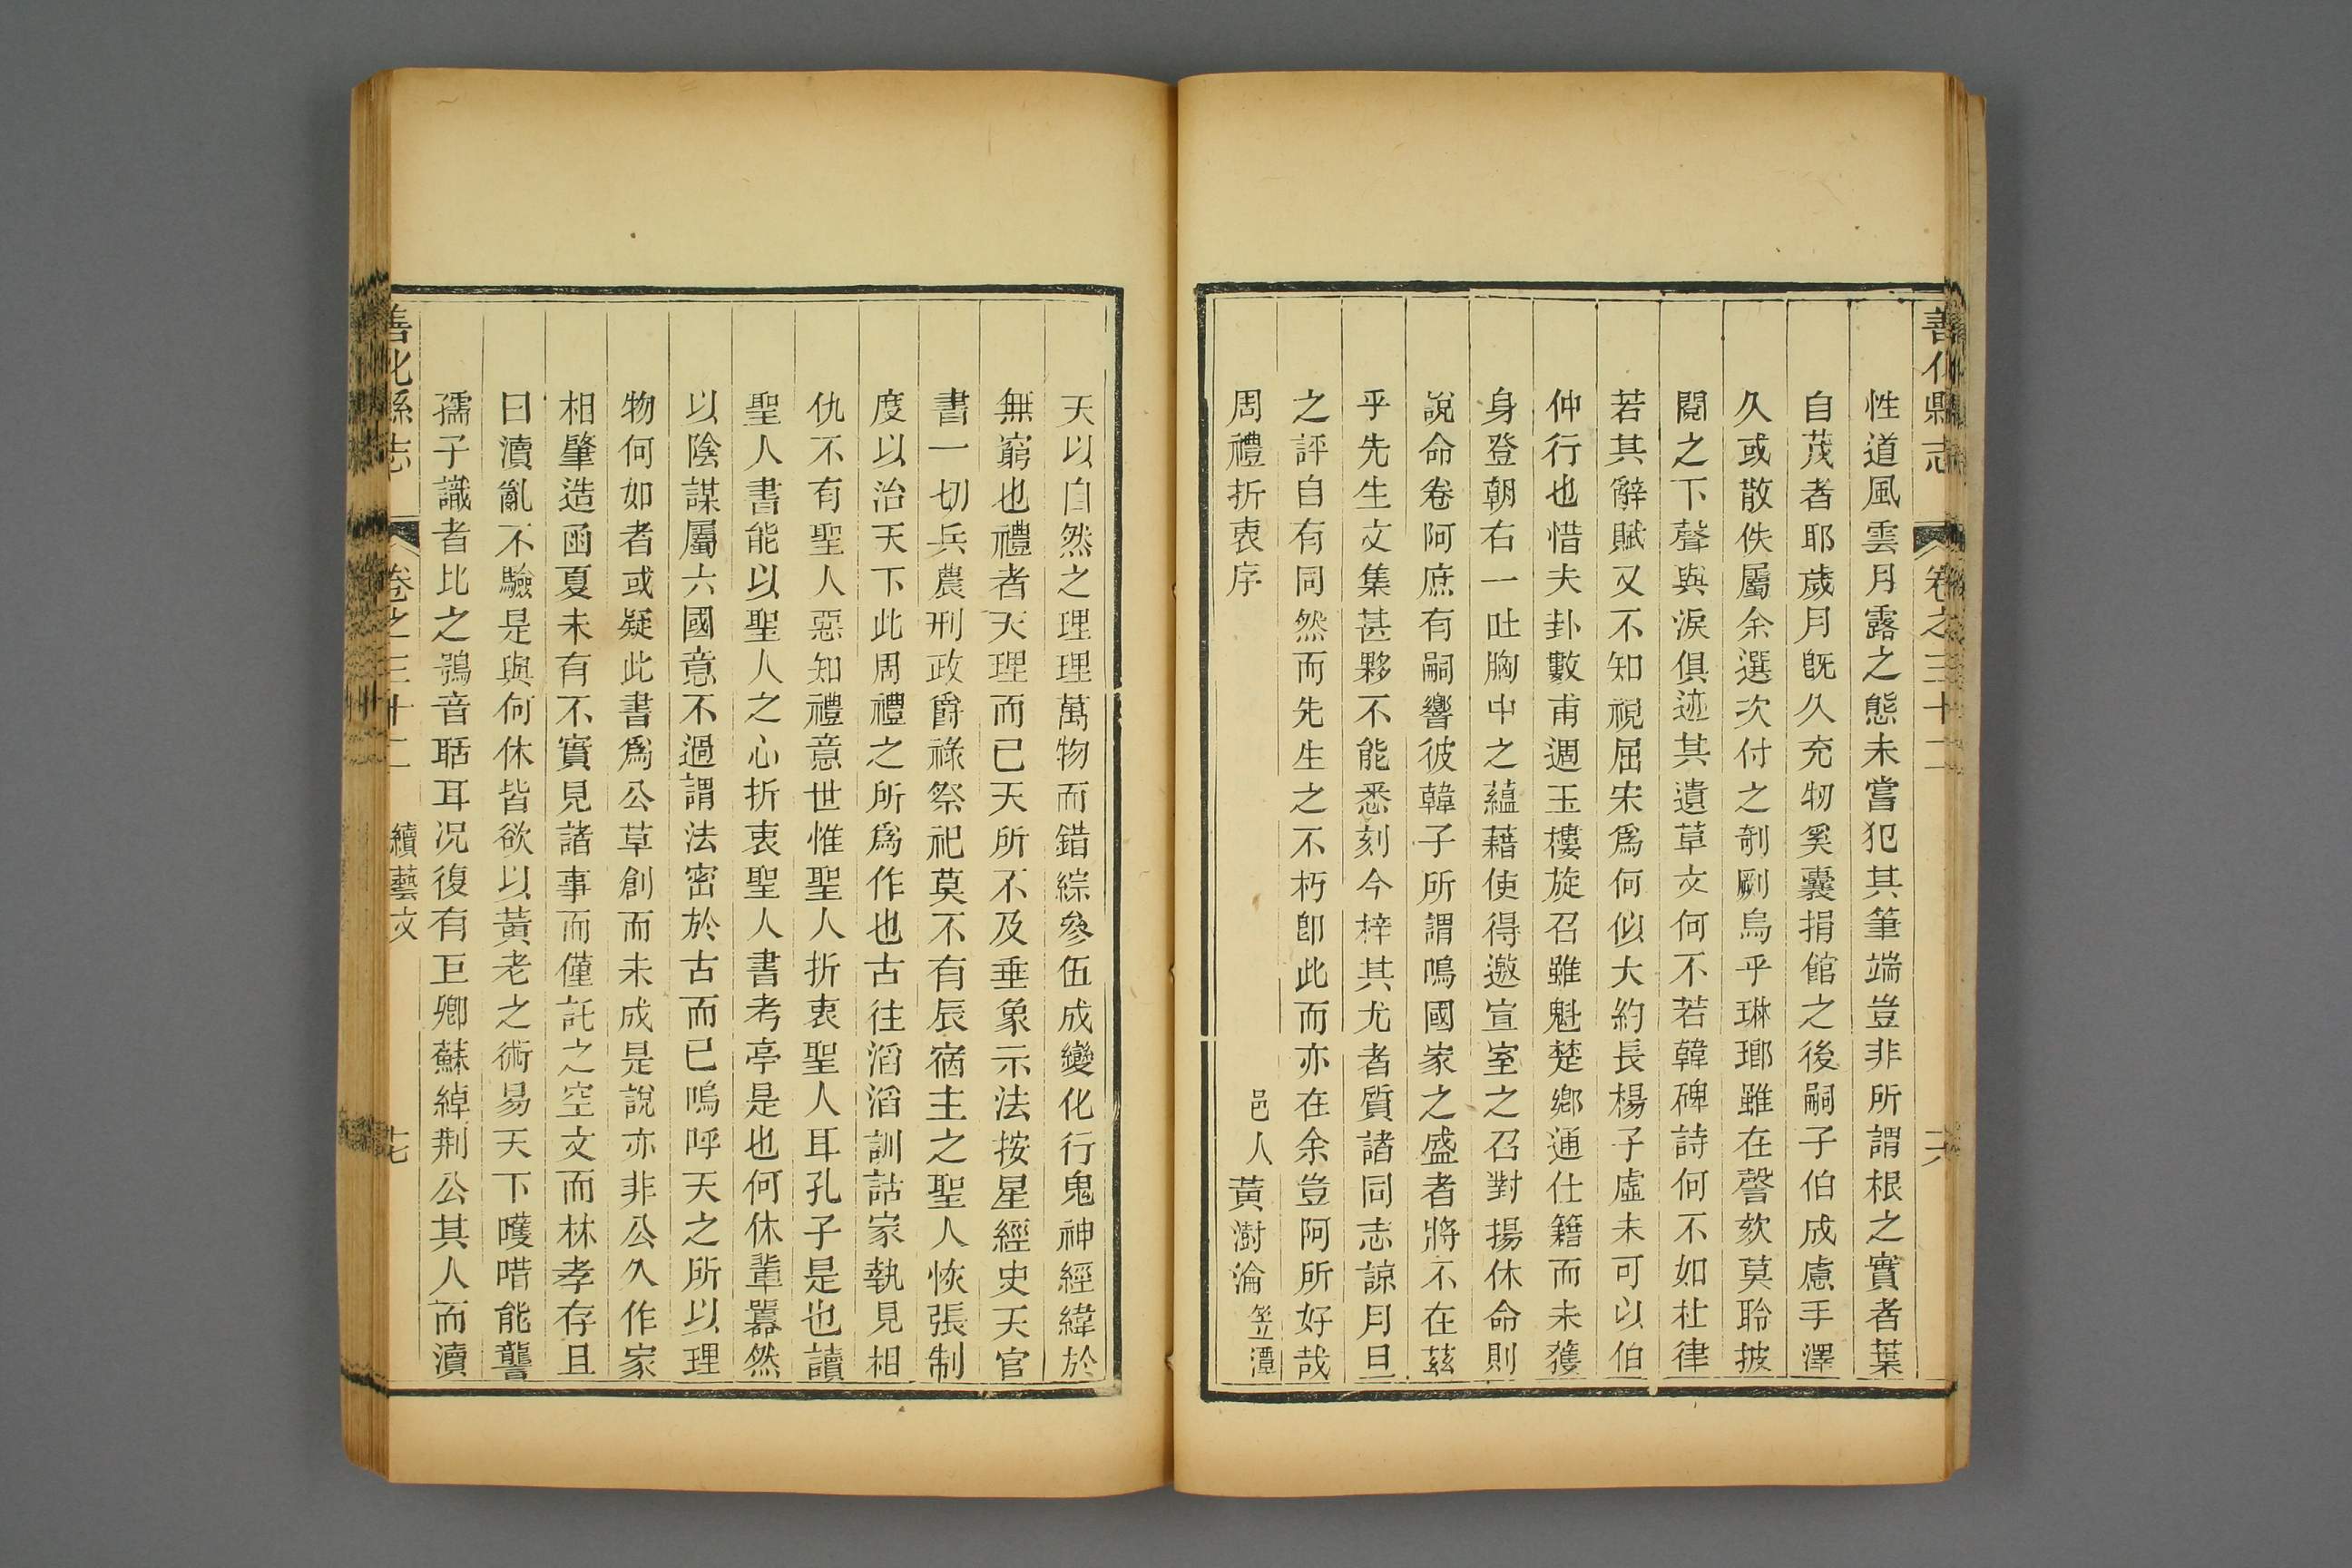 善化縣志
卷之三十二
性道風雲月露之態未嘗犯其筆端豈非所謂根之實者葉
自茂者耶歲月旣久充牣奚囊捐館之後嗣子伯成慮手澤
久或散佚屬余選次付之剞劂烏乎琳瑯雖在謦欬莫聆披
閱之下聲與淚俱迹其遺草文何不若韓碑詩何不如杜律
若其辭賦又不知視屈宋爲何似大約長楊子虛未可以伯
仲行也惜夫卦數甫週玉樓旋召雖魁楚鄉通仕籍而未獲
身登朝右一吐胸中之蘊藉使得邀宣室之召對揚休命則
說命卷阿庶有嗣響彼韓子所謂鳴國家之盛者將不在茲
乎先生文集甚夥不能悉刻今梓其尤者質諸同志諒月旦
之評自有同然而先生之不朽卽此而亦在余豈阿所好哉
周禮折衷序
邑人黃澍淪笠潭
天以自然之理理萬物而錯綜參伍成變化行鬼神經緯於
無窮也禮者天理而已天所不及垂象示法按星經史天官
書一切兵農刑政爵祿祭祀莫不有辰宿主之聖人恢張制
度以治天下此周禮之所爲作也古往滔滔訓詁家執見相
仇不有聖人惡知禮意世惟聖人折衷聖人耳孔子是也讀
聖人書能以聖人之心折衷聖人書考亭是也何休輩囂然
以陰謀屬六國意不過謂法密於古而已嗚呼天之所以理
物何如者或疑此書爲公草創而未成是說亦非公久作家
相肇造函夏未有不實見諸事而僅託之空文而林孝存且
曰瀆亂不驗是與何休皆欲以黃老之術易天下嚄唶能聾
孺子識者比之鴞音聒耳况復有巨卿蘇綽荆公其人而瀆
善化縣志
卷之三十二
續藝文